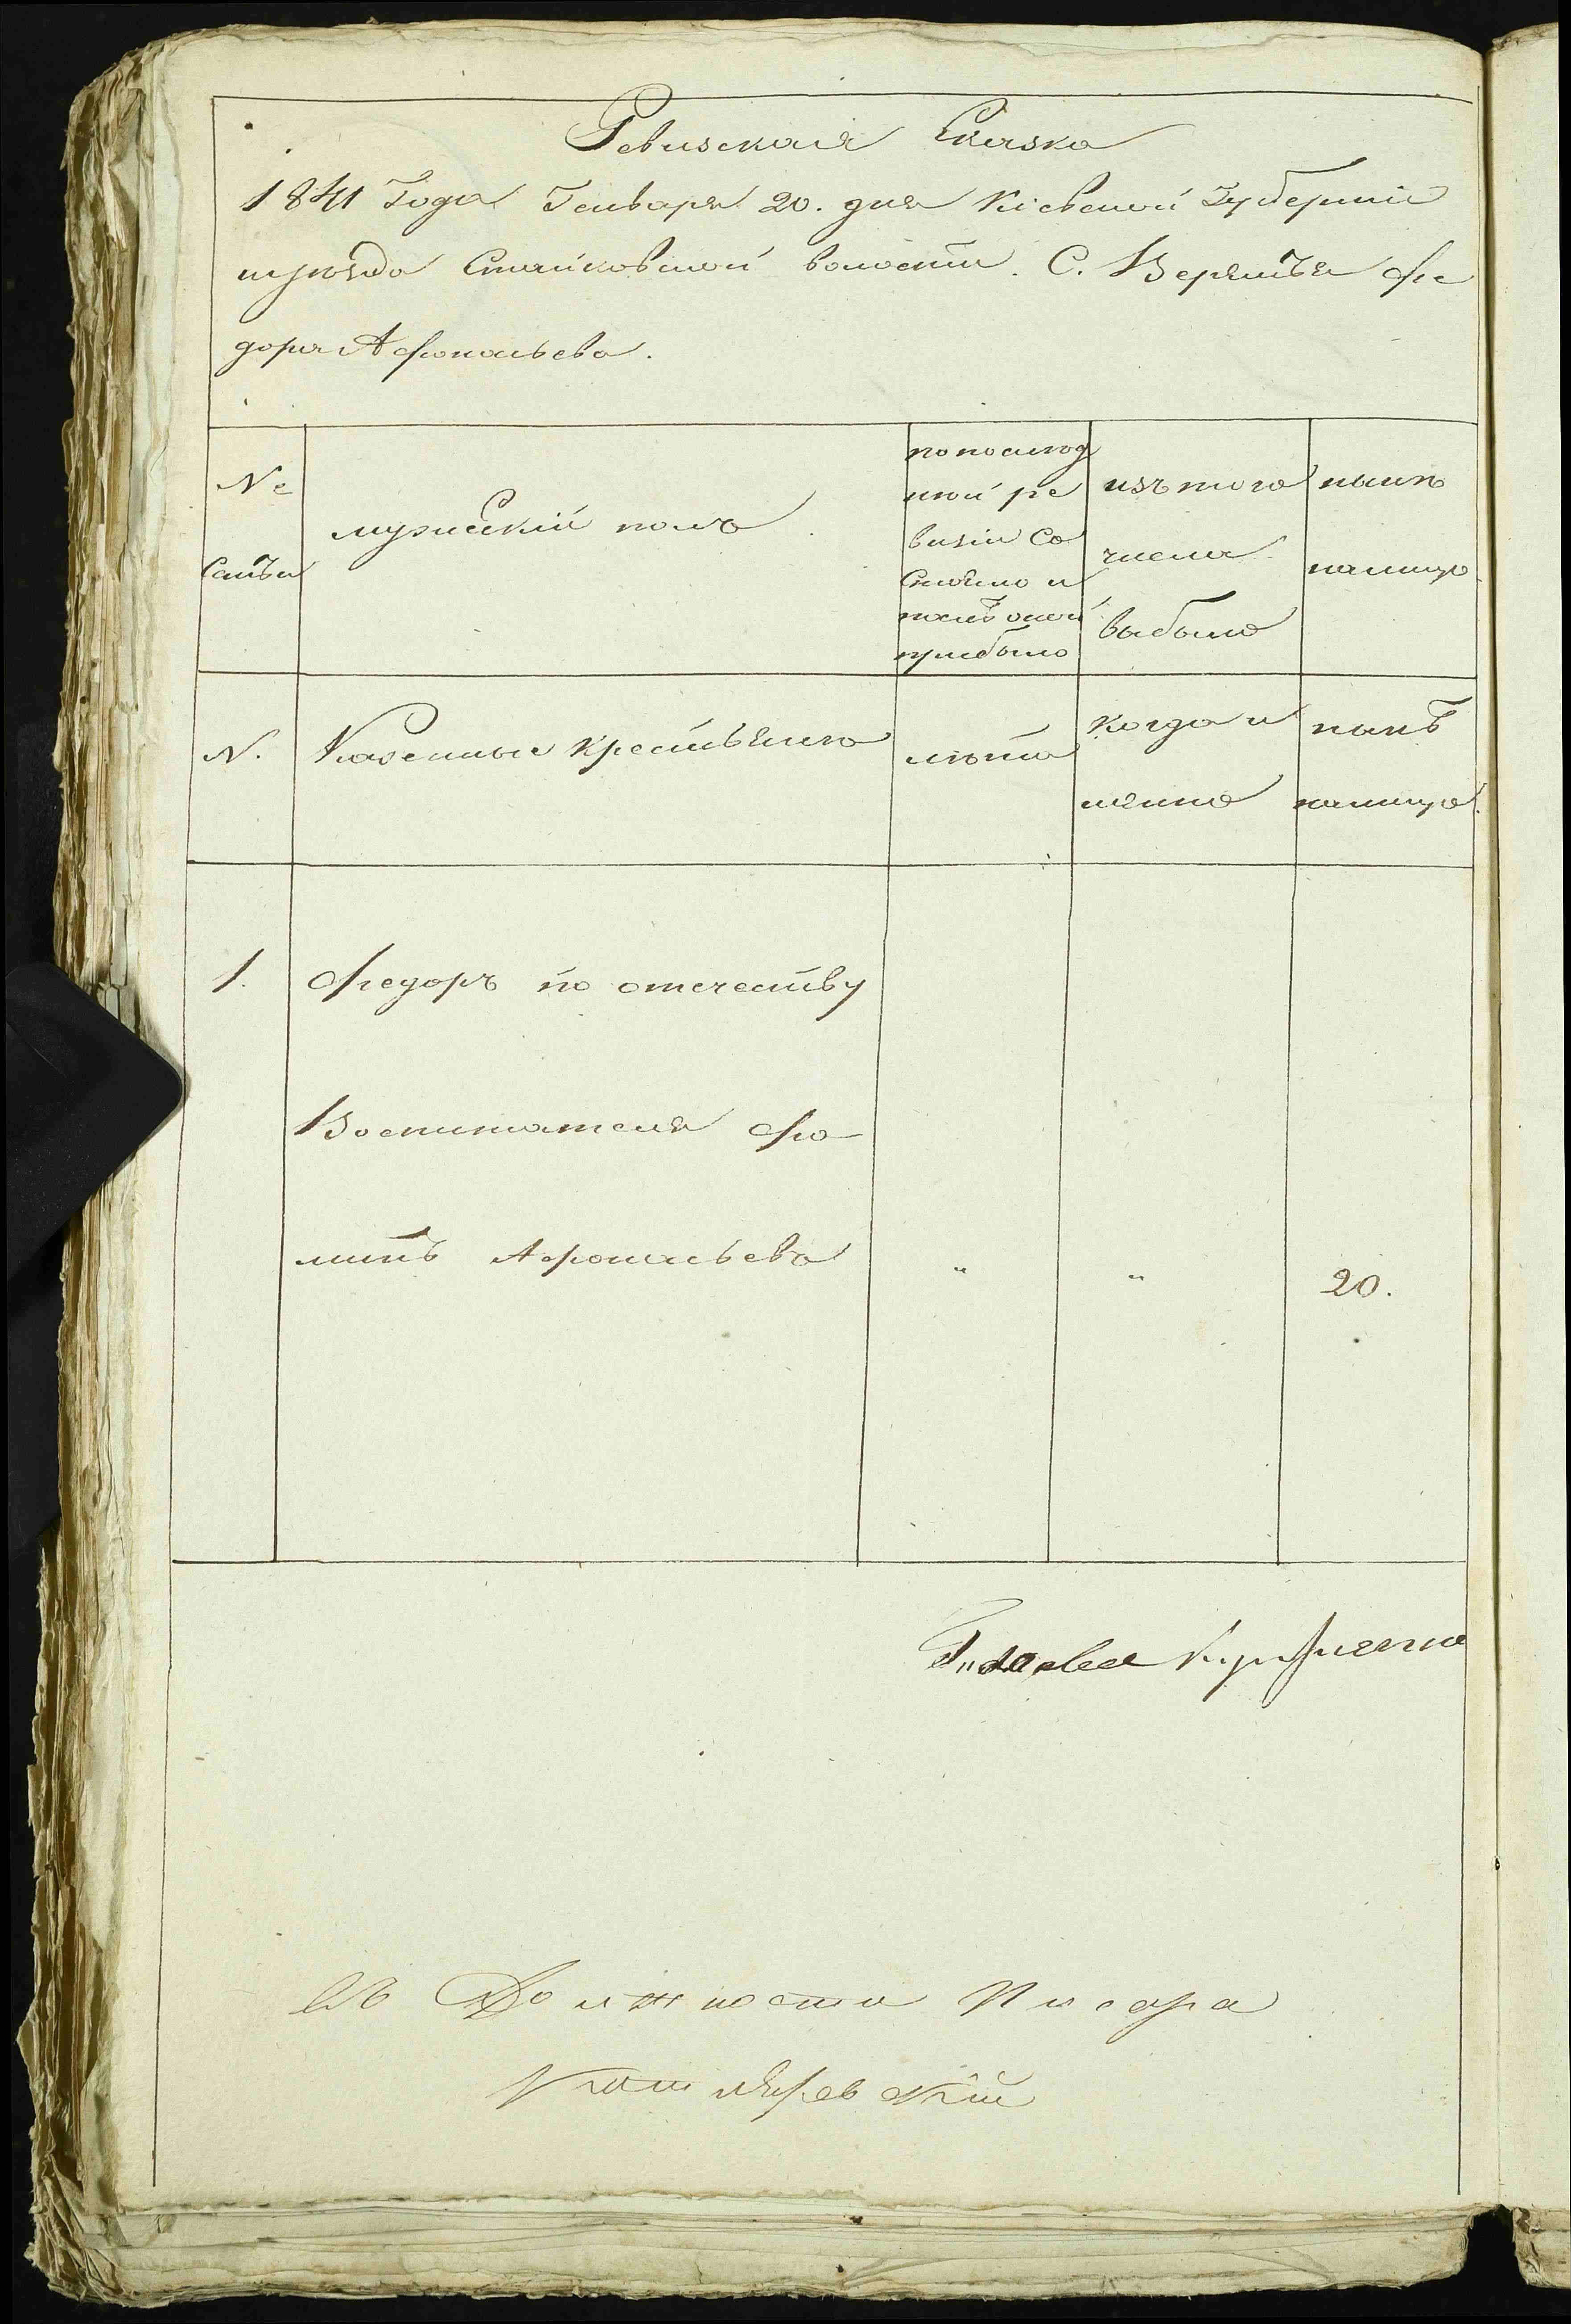 Ревизская Сказка
1841 Года Генваря 20. дня Кіевской Губерніи
и уѣзда Стайковской волости. С. Веремья Фе
дора Афонасьева.
№
Семьи
мужескій полъ
по послѣд
ней ре
визіи Со
Стояло и
послѣ оной
прибыло
изъ того
числа
выбыло
нынѣ
налицо
№.
Казенные крестьяне
лѣта
когда и
менно
нынѣ
налицо.
1.
Федоръ по отечеству
Воспитателя Фо
минъ Афонасьевъ
"
"
20.
Голова
Въ Должности Писара
Котляревскій